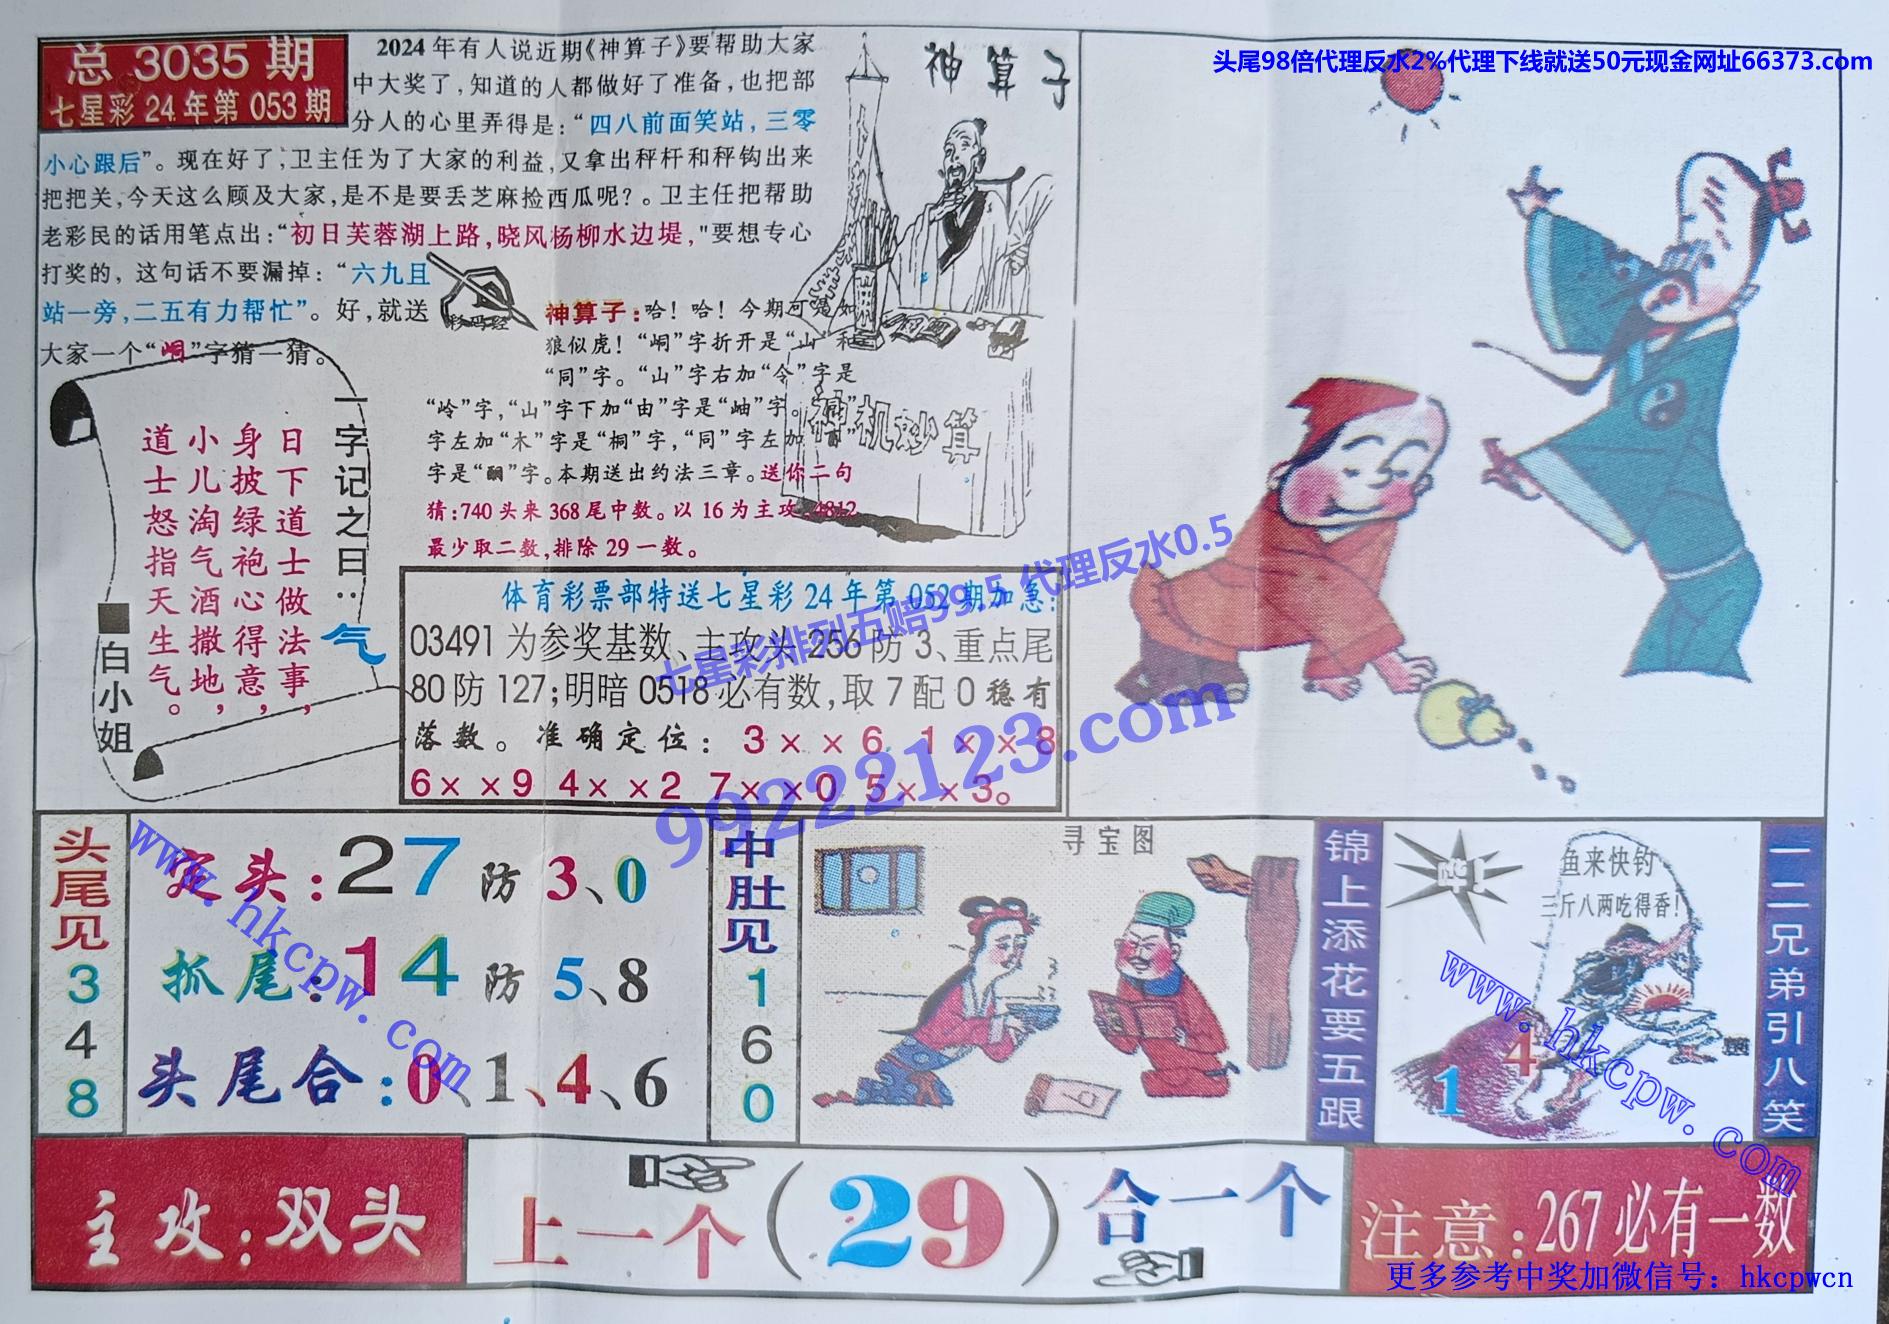 头尾98倍代理反水2%代理下线就送50元现金网址66373.com
总 3035 期
七星彩 24 年第 053 期
2024 年有人说近期《神算子》要帮助大家
中大奖了，知道的人都做好了准备，也把部
分人的心里弄得是：“四八前面笑站，三零
小心跟后”。现在好了；卫主任为了大家的利益，又拿出秤杆和秤钩出来
把把关，今天这么顾及大家，是不是要丢芝麻捡西瓜呢？。卫主任把帮助
老彩民的话用笔点出：“初日芙蓉湖上路，晓风杨柳水边堤，"要想专心
打奖的，这句话不要漏掉：“六九且
站一旁，二五有力帮忙”。好，就送
大家一个“峒”字猜一猜。
神算子
神算子：哈！哈！今期可是如
狼似虎！“峒”字折开是“山”和
“同”字。“山”字右加“令”字是
“岭”字，“山”字下加“由”字是“岫”字。“同”
字左加“木”字是“桐”字，“同”字左加“酉”
字是“酮”字。本期送出约法三章。送你二句
猜：740 头来 368 尾中数。以 16 为主攻，4812
最少取二数，排除 29 一数。
神机妙算
一字记之曰：气
日下道士做法事，
身披绿袍心得意，
小儿淘气酒撒地，
道士怒指天生气。
■白小姐
体育彩票部特送七星彩 24 年第 052 期加急：
03491 为参奖基数、主攻头 256 防 3、重点尾
80 防 127；明暗 0518 必有数，取 7 配 0 稳有
落数。准确定位：3××6 1××8
6××9 4××2 7××0 5××3。
七星彩排列五赔99.5 代理反水0.5
99222123.com
头尾见348
定头：27 防 3、0
抓尾：14 防 5、8
头尾合：0、1、4、6
www.hkcpw.com
中肚见160
寻宝图
锦上添花要五跟
鱼来快钓
三斤八两吃得香！
1 4
www.hkcpw.com
一二兄弟引八笑
主攻：双头
上一个（29）合一个
注意：267 必有一数
更多参考中奖加微信号：hkcpwcn